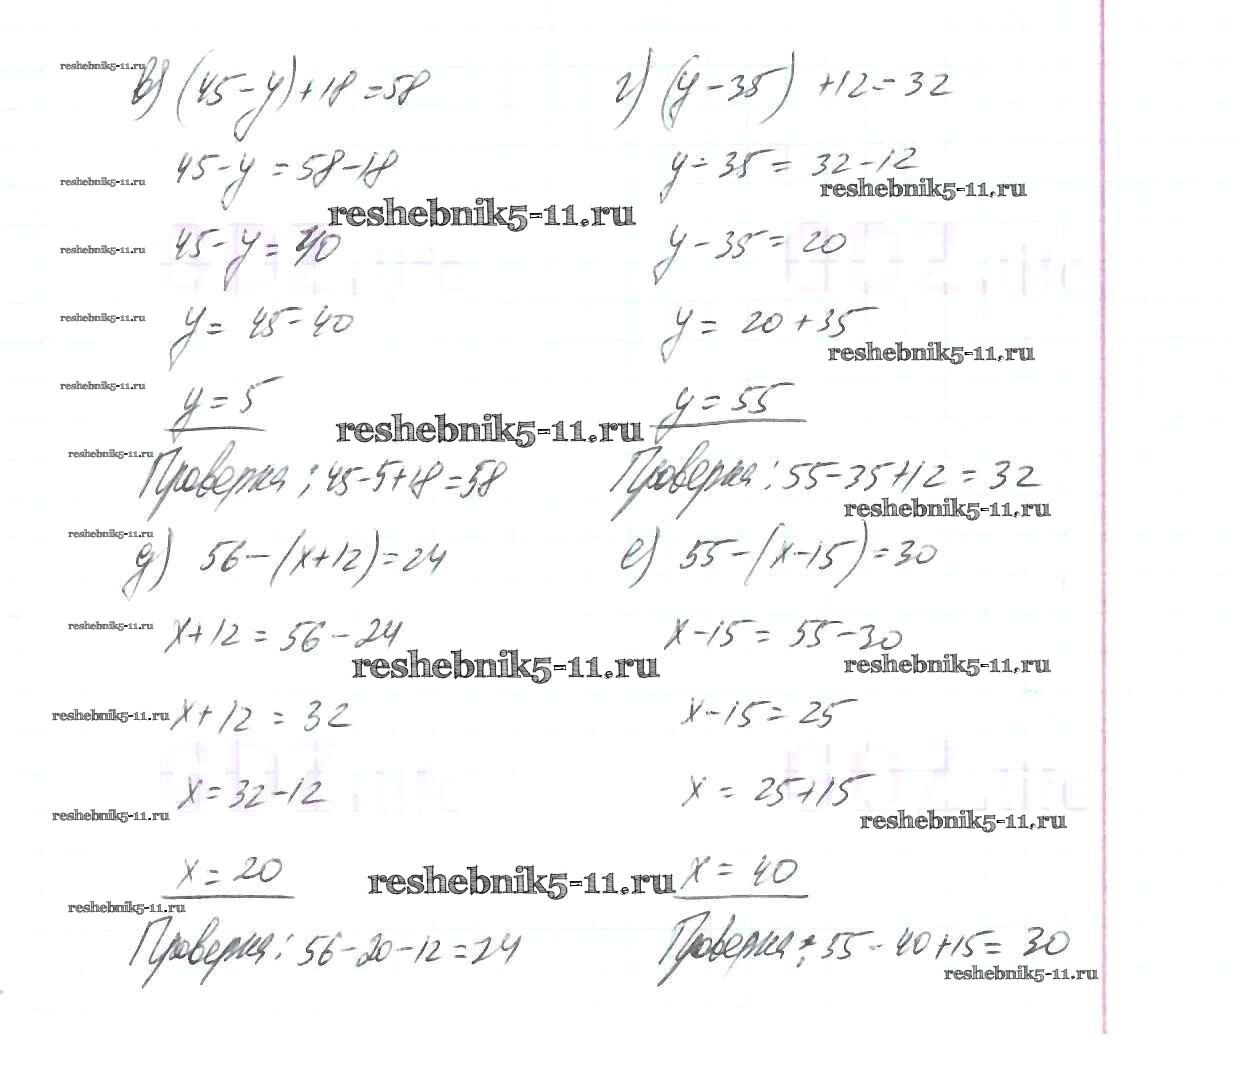 reshebnik5-11.ru
в) (45-y)+18=58
г) (y-35) +12=32
45-y=58-18
y-35=32-12
reshebnik5-11.ru
reshebnik5-11.ru
reshebnik5-11.ru
45-y=40
y-35=20
reshebnik5-11.ru
y=45-40
y=20+35
reshebnik5-11.ru
reshebnik5-11.ru
y=5
y=55
reshebnik5-11.ru
reshebnik5-11.ru
Проверка: 45-5+18=58
Проверка: 55-35+12=32
reshebnik5-11.ru
reshebnik5-11.ru
reshebnik5-11.ru
д) 56-(x+12)=24
е) 55-(x-15)=30
x+12=56-24
x-15=55-30
reshebnik5-11.ru
reshebnik5-11.ru
reshebnik5-11.ru
x+12=32
x-15=25
reshebnik5-11.ru
x=32-12
x=25+15
reshebnik5-11.ru
reshebnik5-11.ru
x=20
x=40
reshebnik5-11.ru
reshebnik5-11.ru
Проверка: 56-20-12=24
Проверка: 55-40+15=30
reshebnik5-11.ru